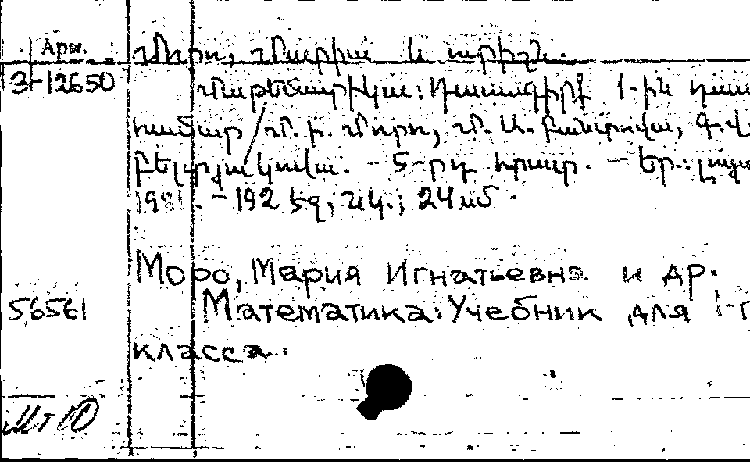 Арм.
Մորո, Մարիա և ուրիշն.
3-12650
Մաթեմատիկա: Դասագիրք 1-ին դաս
համար / Մ. Ի. Մորո, Մ. Ա. Բանտովա, Գ. Վ.
Բելտյուկովա. - 5-րդ հրատ. - Եր.: Լույս
198 . - 192 էջ, նկ.; 24 սմ.
Моро, Мария Игнатьевна и др.
56561
Математика: Учебник для 1-г
класса.